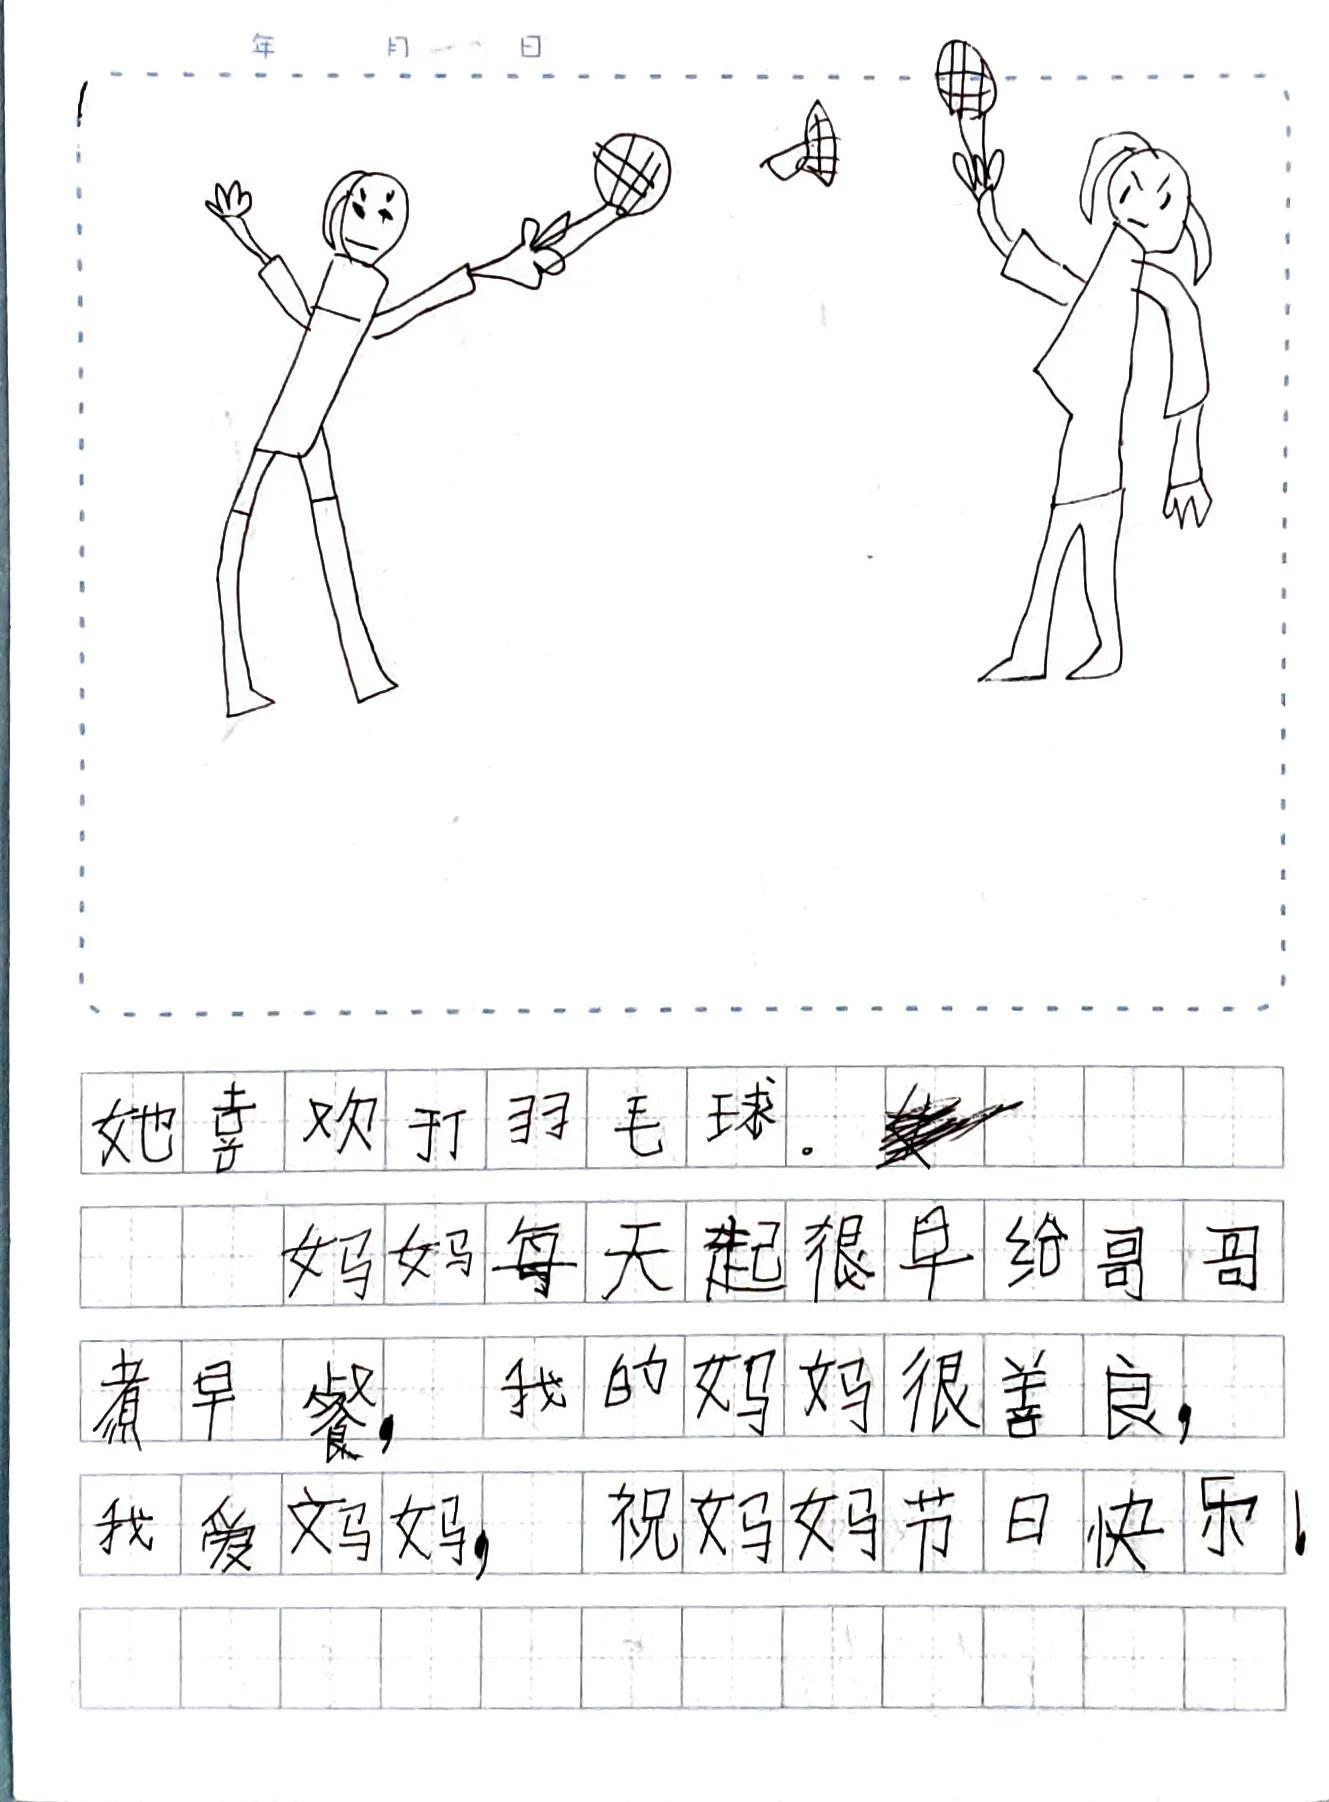 年 月 日
她喜欢打羽毛球.
妈妈每天起很早给哥哥
煮早餐, 我的妈妈很善良,
我爱妈妈, 祝妈妈节日快乐!